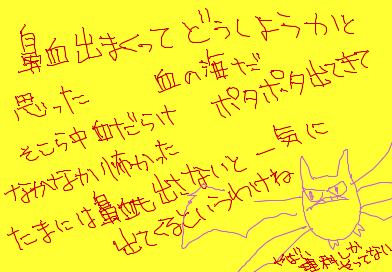 鼻血出まくってどうしようかと
思った
血の海だ
そこら中血だらけ
ポタポッタ出てきて
なかなか怖かった
たまには鼻血も出さないと
一気に
出てくるというわけね
やばい
専科しか